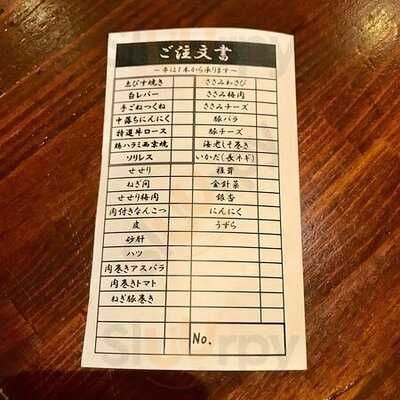 ご注文書
〜串は1本から承ります〜
ゑびす焼き
白レバー
手ごねつくね
中落ちにんにく
特選牛ロース
鶏ハラミ西京焼
ソリレス
せせり
ねぎ間
せせり梅肉
肉付きなんこつ
皮
砂肝
ハツ
肉巻きアスパラ
肉巻きトマト
ねぎ豚巻き
ささみわさび
ささみ梅肉
ささみチーズ
豚バラ
豚チーズ
海老しそ巻き
いかだ(長ネギ)
椎茸
金針菜
銀杏
にんにく
うずら
No.
Sluurrpy